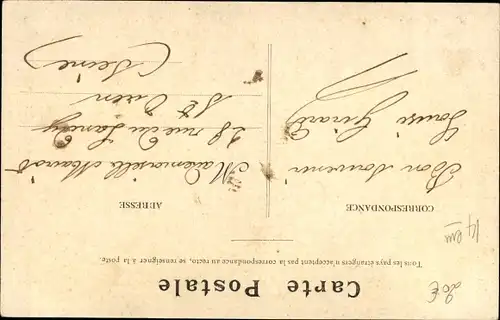 Carte Postale
Tous les pays étrangers n'acceptent pas la correspondance au recto, se renseigner à la poste.
CORRESPONDANCE
ADRESSE
Bon souvenir
Louise Girard
Mademoiselle
28 rue du Landy
St Ouen
(Seine)
20€